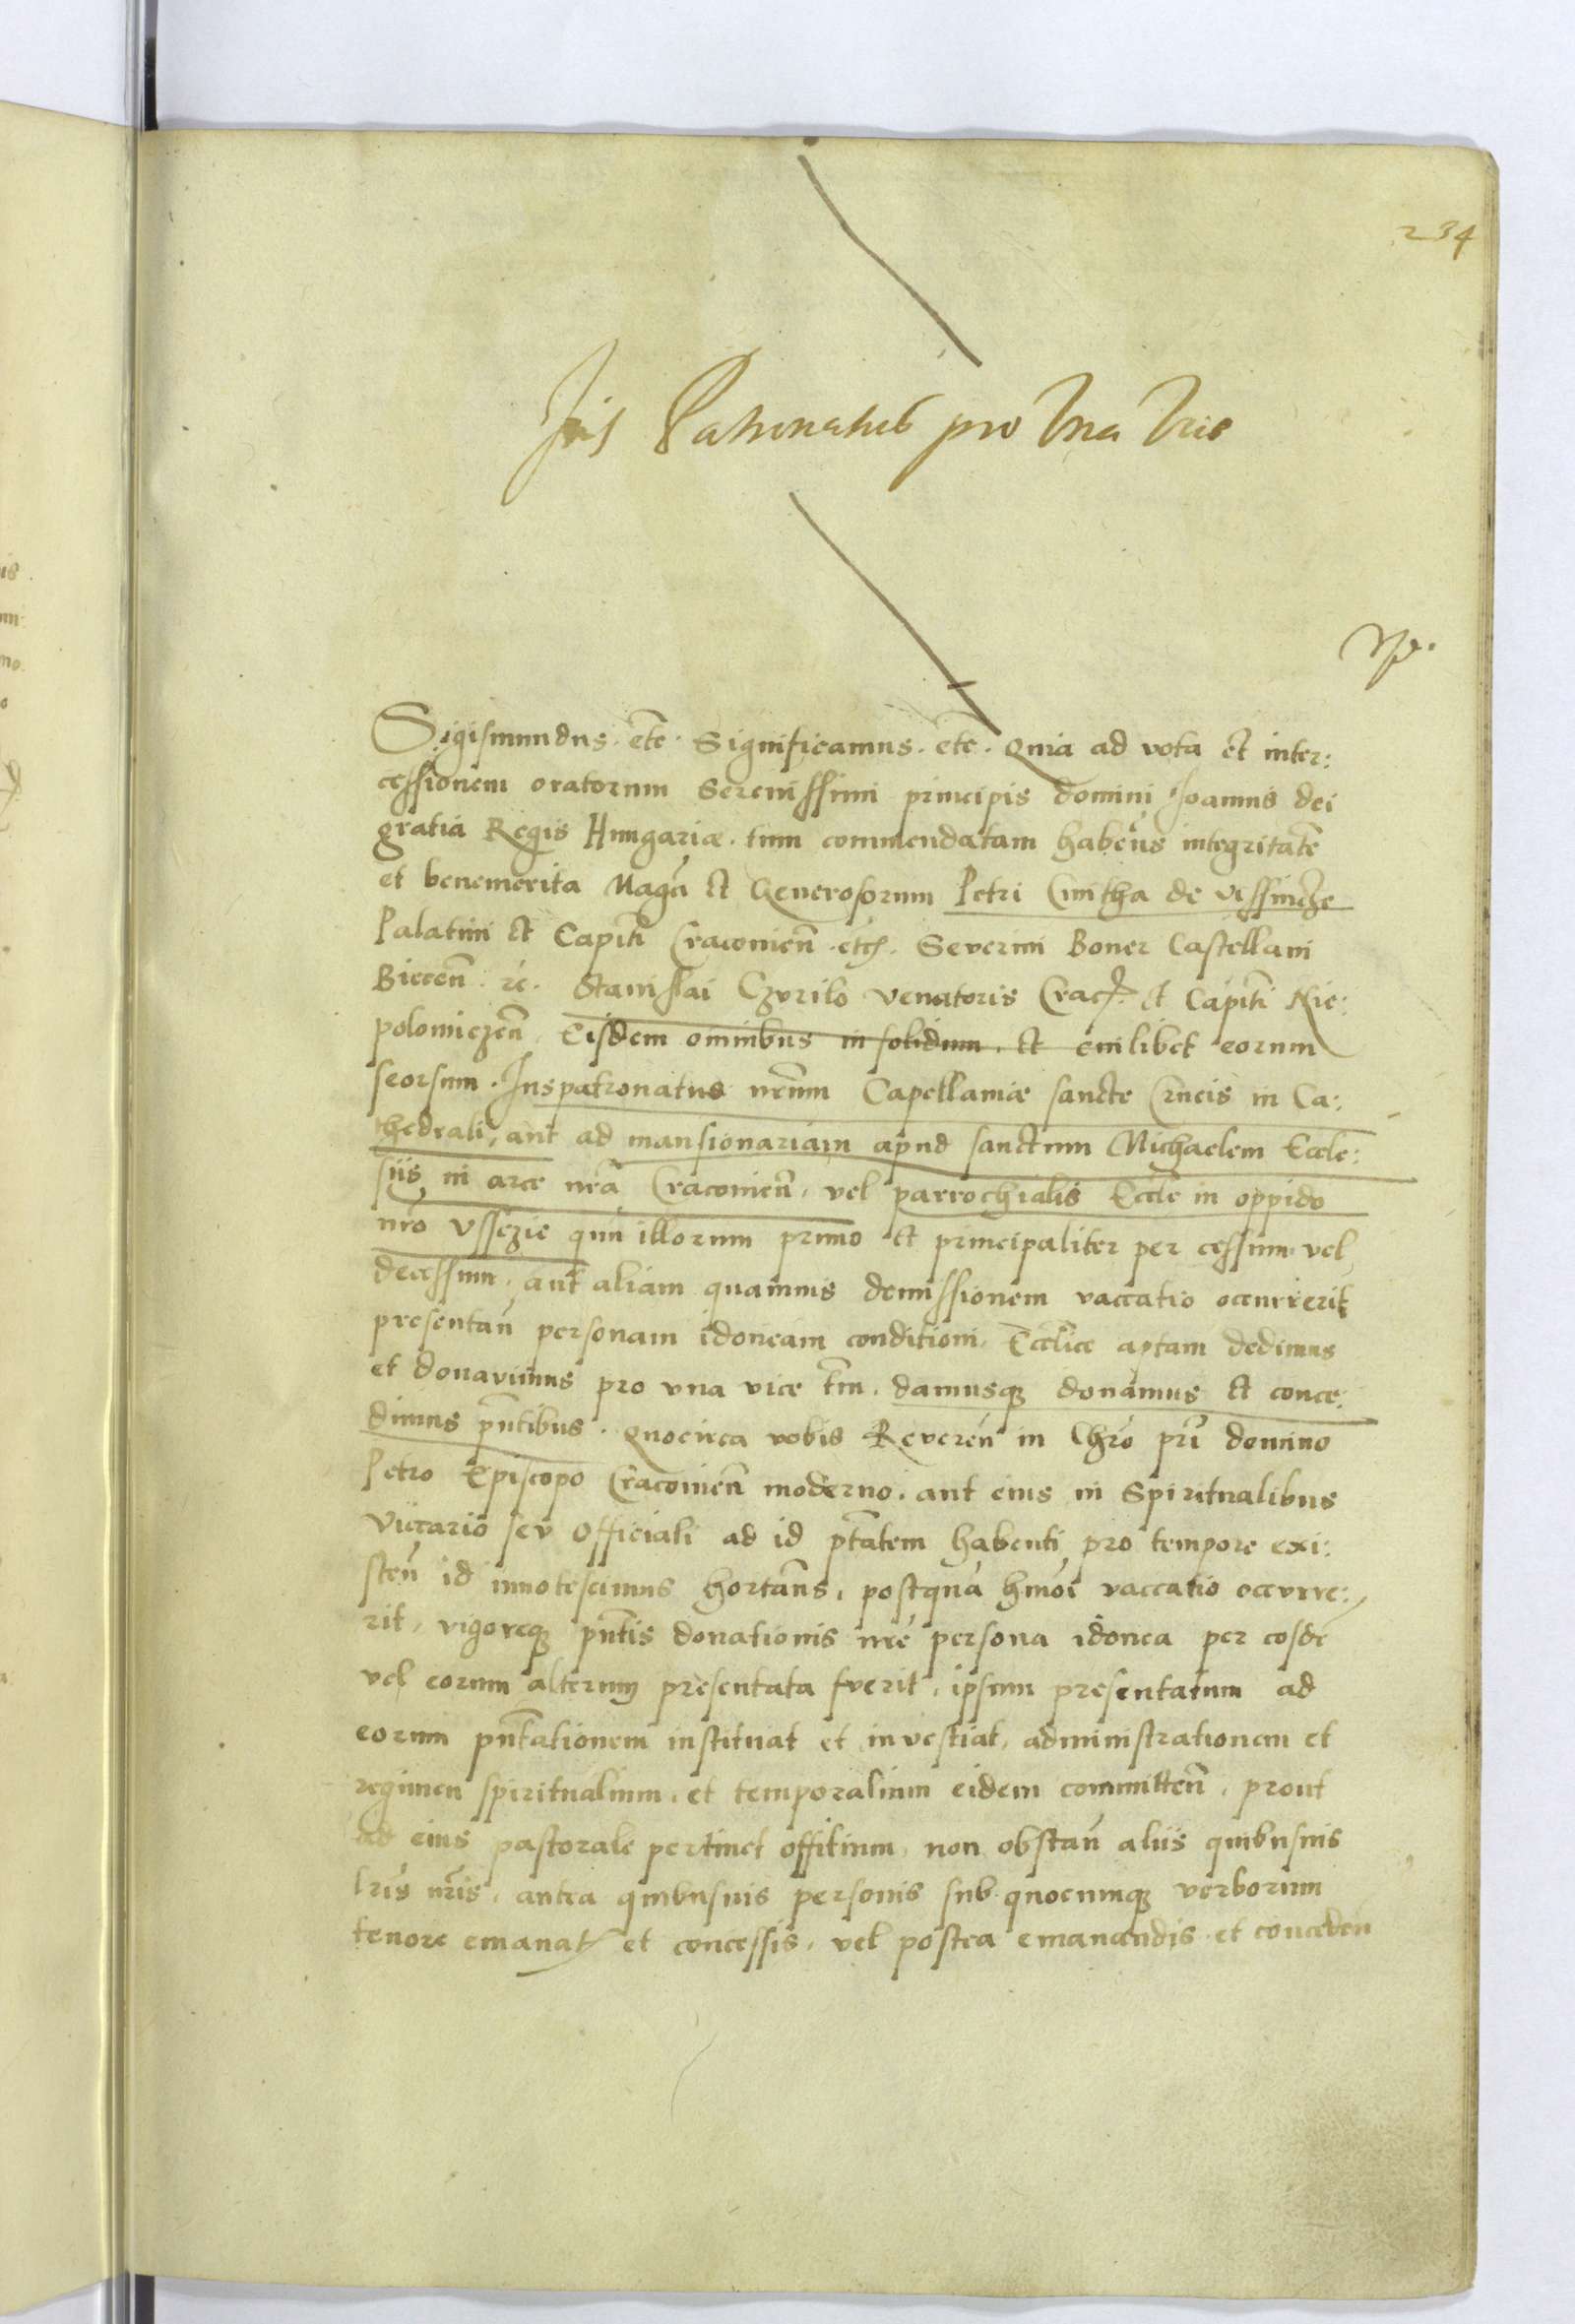 234
Jus Patronatus pro Una Vice
Sigismundus. etc. Significamus. etc. Quia ad vota et inter:
cessionem oratorum Serenissimi principis domini Joannis dei
gratia Regis Hungariæ. tum commendatam habeñs integritatē
et benemerita Magcī et Generosorum Petri Cmitha de Vissnicze
Palatini et Capitī Cracovieñ. etcꝭ. Severini Boner Castellani
Bieceñ. rč. Stanislai Czvrilo venatoris Cracꝭ. et Capitī Nie:
polomiczeñ. Eisdem omnibus in solidum. et cuilibet eorum
seorsum. Juspatronatus nrūm Capellaniæ sancte Crucis in Ca:
thedrali, aut ad mansionariam apud sanctum Michaelem Eccle:
siis in arce nrā Cracovieñ, vel parrochialis Eccle in oppido
nrō Usscze qūn illorum primo et principaliter per cessum vel
decessum, aut aliam quamvis demissionem vaccatio occurrerit
presentañ personam idoneam conditioni, Eccliæ aptam dedimus
et donavimus pro una vice tm̄. damusqꝫ donamus et conce:
dimus pñtibus. Quocirca vobis Revereñ in Chrō prī domino
Petro Episcopo Cracovieñ moderno. aut eius in Spiritualibus
Viccario sev Officiali ad id ptātem habenti pro tempore exi:
steñ id innotescimus hortañs, postquā hmōi vaccatio occvrre:
rit, vigoreqꝫ pñtis donationis nrē persona idonea per eosdē
vel eorum alterum presentata fverit, ipsum presentatum ad
eorum pñtationem instituat et investiat, administrationem et
regimen spiritualium, et temporalium eidem committeñ, prout
ad eius pastorale pertinet offitium, non obstañ aliis quibusvis
lrīs nrīs, antea quibusvis personis sub quocumqꝫ verborum
tenore emanatꝭ et concessis, vel postea emanandis et concedeñ